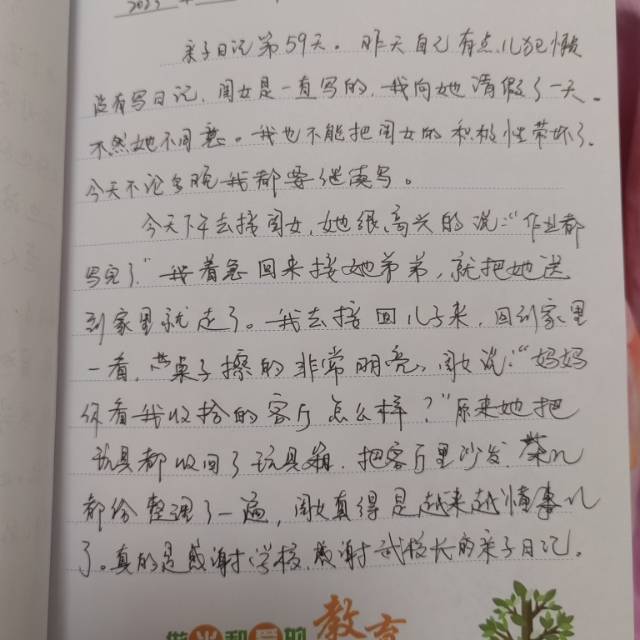 亲子日记第59天。昨天自己有点儿犯懒
没有写日记，闺女是一直写的，我向她请假了一天。
不然她不同意。我也不能把闺女的积极性带坏了。
今天不论多晚我都要继续写。
今天下午去接闺女，她很高兴的说：“作业都
写完了”我着急回来接她弟弟，就把她送
到家里就走了。我去接回儿子来，回到家里
一看，桌子擦的非常明亮，闺女说：“妈妈
你看我收拾的客厅怎么样？”原来她把
玩具都收回了玩具箱，把客厅里沙发，茶几
都给整理了一遍，闺女真得是越来越懂事儿
了。真的是感谢学校，感谢武校长的亲子日记。
教育